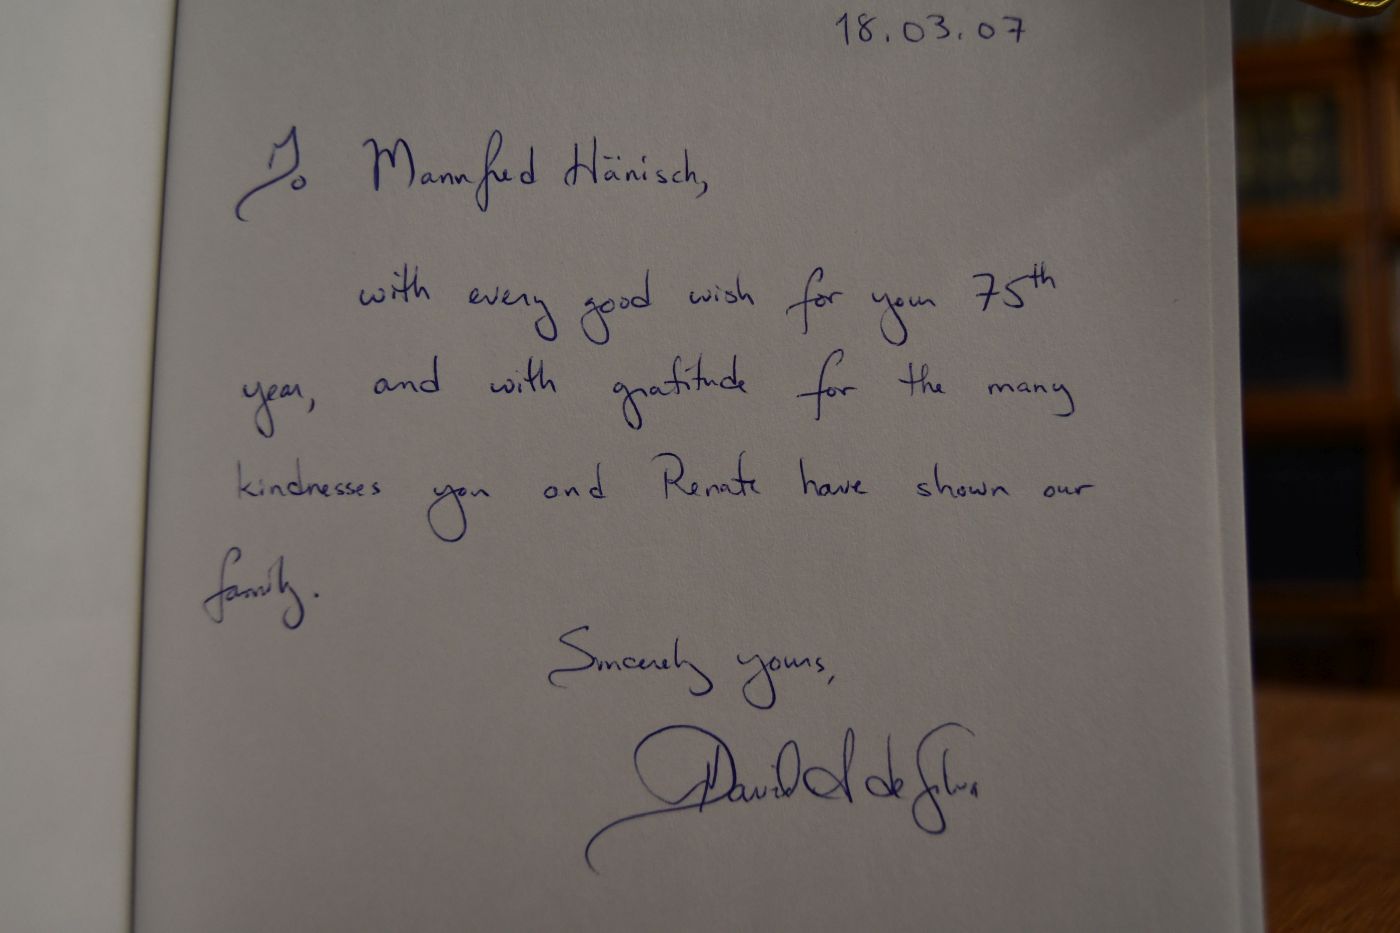 18.03.07
To Mannfred Hänisch,
with every good wish for your 75th
year, and with gratitude for the many
kindnesses you and Renate have shown our
family.
Sincerely yours,
David A deSilva